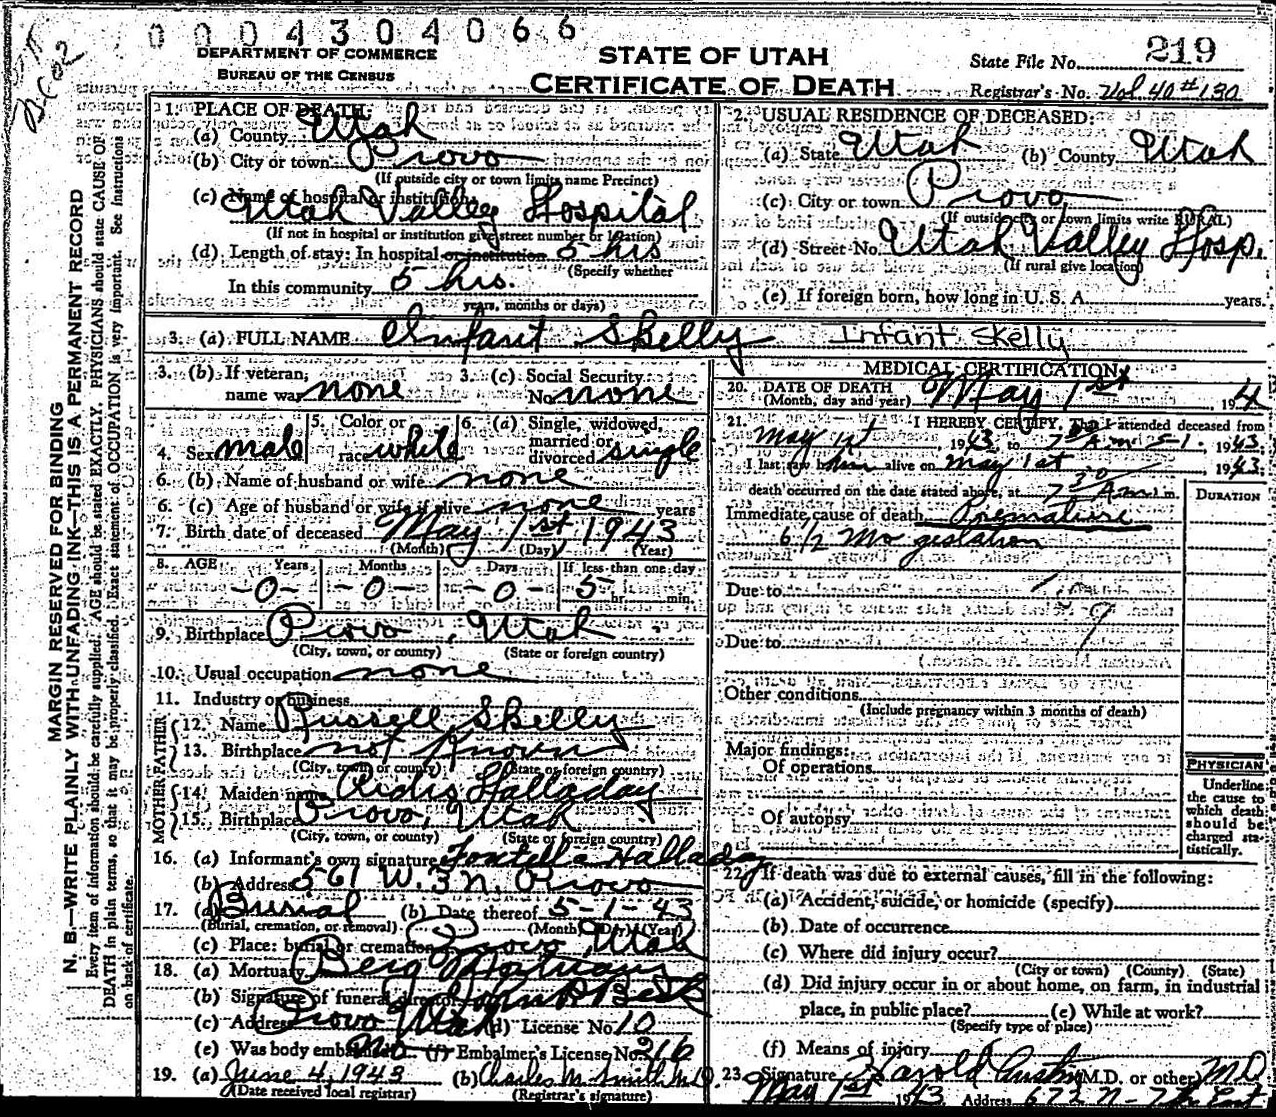 0004304066
DEPARTMENT OF COMMERCE
BUREAU OF THE CENSUS
STATE OF UTAH
CERTIFICATE OF DEATH
State File No. 219
Registrar's No. Vol 40 # 130
MARGIN RESERVED FOR BINDING
N. B.—WRITE PLAINLY WITH UNFADING INK—THIS IS A PERMANENT RECORD
Every item of information should be carefully supplied. AGE should be stated EXACTLY. PHYSICIANS should state CAUSE OF
DEATH in plain terms, so that it may be properly classified. Exact statement of OCCUPATION is very important. See instructions
on back of certificate.
1. PLACE OF DEATH:
(a) County Utah
(b) City or town Provo
(If outside city or town limits name Precinct)
(c) Name of hospital or institution:
Utah Valley Hospital
(If not in hospital or institution give street number or location)
(d) Length of stay: In hospital or institution 5 hrs
(Specify whether
In this community 5 hrs.
years, months or days)
2. USUAL RESIDENCE OF DECEASED:
(a) State Utah (b) County Utah
(c) City or town Provo
(If outside city or town limits write RURAL)
(d) Street No. Utah Valley Hosp.
(If rural give location)
(e) If foreign born, how long in U. S. A. years.
3. (a) FULL NAME Infant Skelly Infant Skelly
3. (b) If veteran, name war none
3. (c) Social Security No. none
4. Sex male
5. Color or race white
6. (a) Single, widowed, married or divorced single
6. (b) Name of husband or wife none
6. (c) Age of husband or wife if alive none years
7. Birth date of deceased May 1st, 1943
(Month) (Day) (Year)
8. AGE Years Months Days If less than one day
-0- -0- -0- 5 hr. min.
9. Birthplace Provo, Utah
(City, town, or county) (State or foreign country)
10. Usual occupation none
11. Industry or business
FATHER
12. Name Russell Skelly
13. Birthplace not Known
(City, town, or county) (State or foreign country)
MOTHER
14. Maiden name Ardis Halladay
15. Birthplace Provo, Utah
(City, town, or county) (State or foreign country)
16. (a) Informant's own signature Fontella Halladay
(b) Address 561 W. 3 N. Provo
17. (a) Burial (b) Date thereof 5-1-43
(Burial, cremation, or removal) (Month) (Day) (Year)
(c) Place: burial or cremation Provo, Utah
18. (a) Mortuary Berg Mortuary
(b) Signature of funeral director
(c) Address Provo Utah (d) License No. 10
(e) Was body embalmed no (f) Embalmer's License No. 216
19. (a) June 4, 1943 (b) Charles M. Smith M.D.
(Date received local registrar) (Registrar's signature)
MEDICAL CERTIFICATION
20. DATE OF DEATH
(Month, day and year) May 1st 194
21. I HEREBY CERTIFY, That I attended deceased from
May 1st 1943 to 7 30 A.m 5-1. 1943.
I last saw him alive on May 1st 1943.
death occurred on the date stated above, at 7 30 A m.
DURATION
Immediate cause of death Premature
6 1/2 Mo gestation
Due to
Due to
Other conditions
(Include pregnancy within 3 months of death)
Major findings:
Of operations
Of autopsy
PHYSICIAN
Underline
the cause to
which death
should be
charged sta-
tistically.
22. If death was due to external causes, fill in the following:
(a) Accident, suicide, or homicide (specify)
(b) Date of occurrence
(c) Where did injury occur?
(City or town) (County) (State)
(d) Did injury occur in or about home, on farm, in industrial
place, in public place? (e) While at work?
(Specify type of place)
(f) Means of injury
23. Signature Harold Austin (M.D. or other) MD
May 1st 1943 Address 672 N-7th East